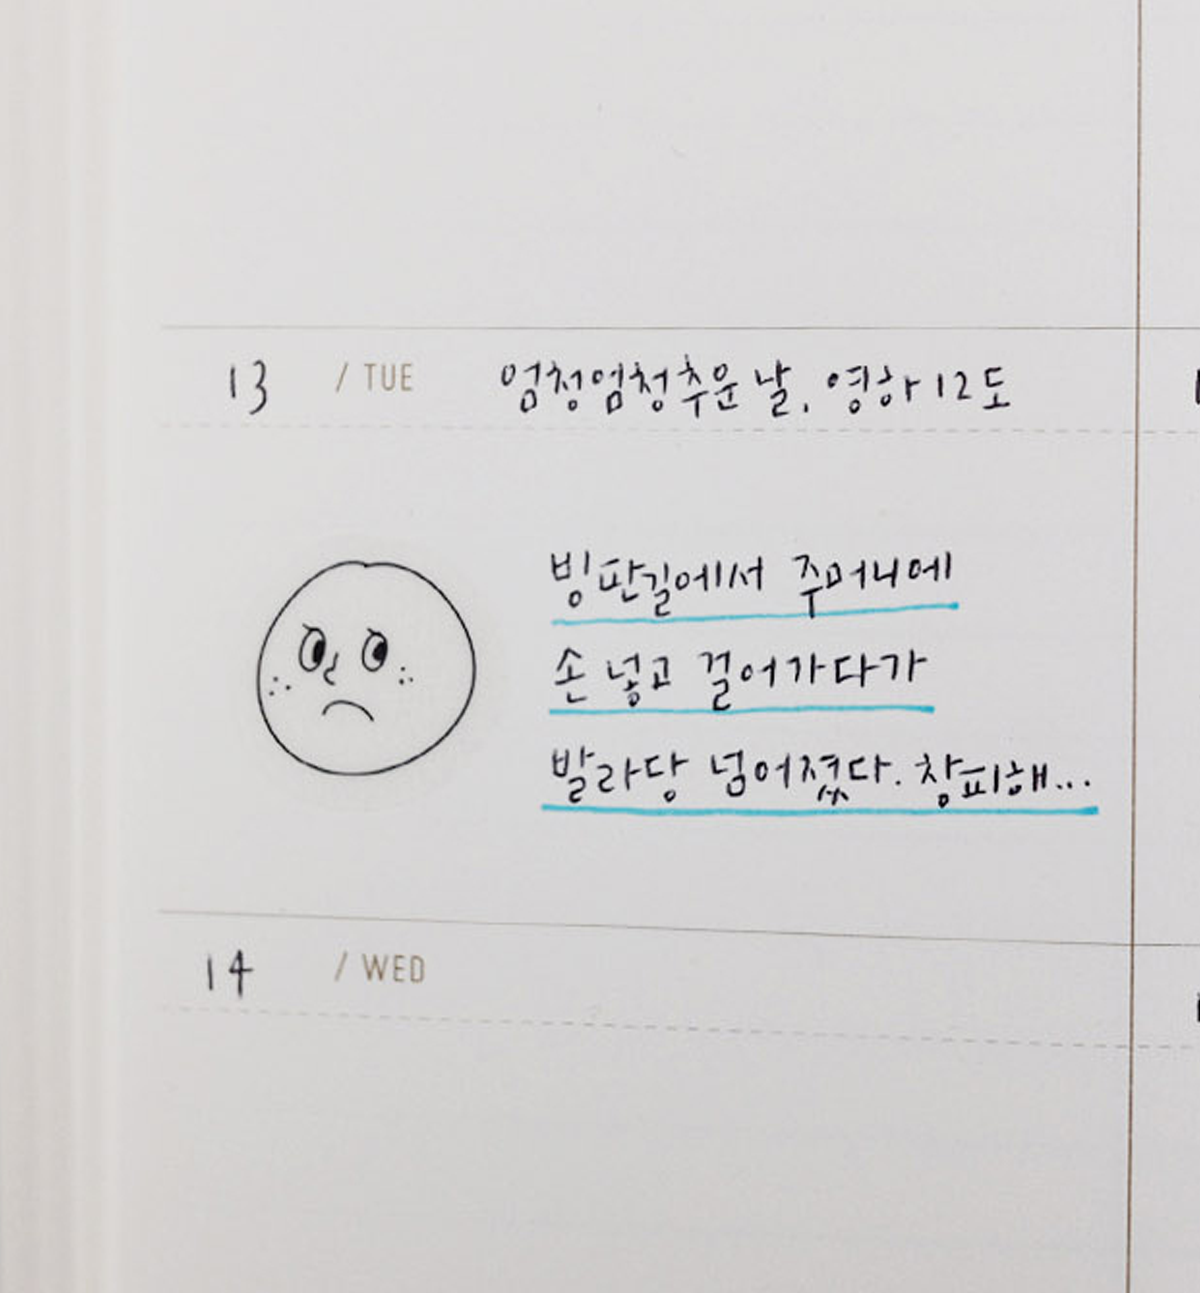 13 / TUE 엄청엄청추운날. 영하12도
빙판길에서 주머니에
손 넣고 걸어가다가
발라당 넘어졌다. 창피해...
14 / WED